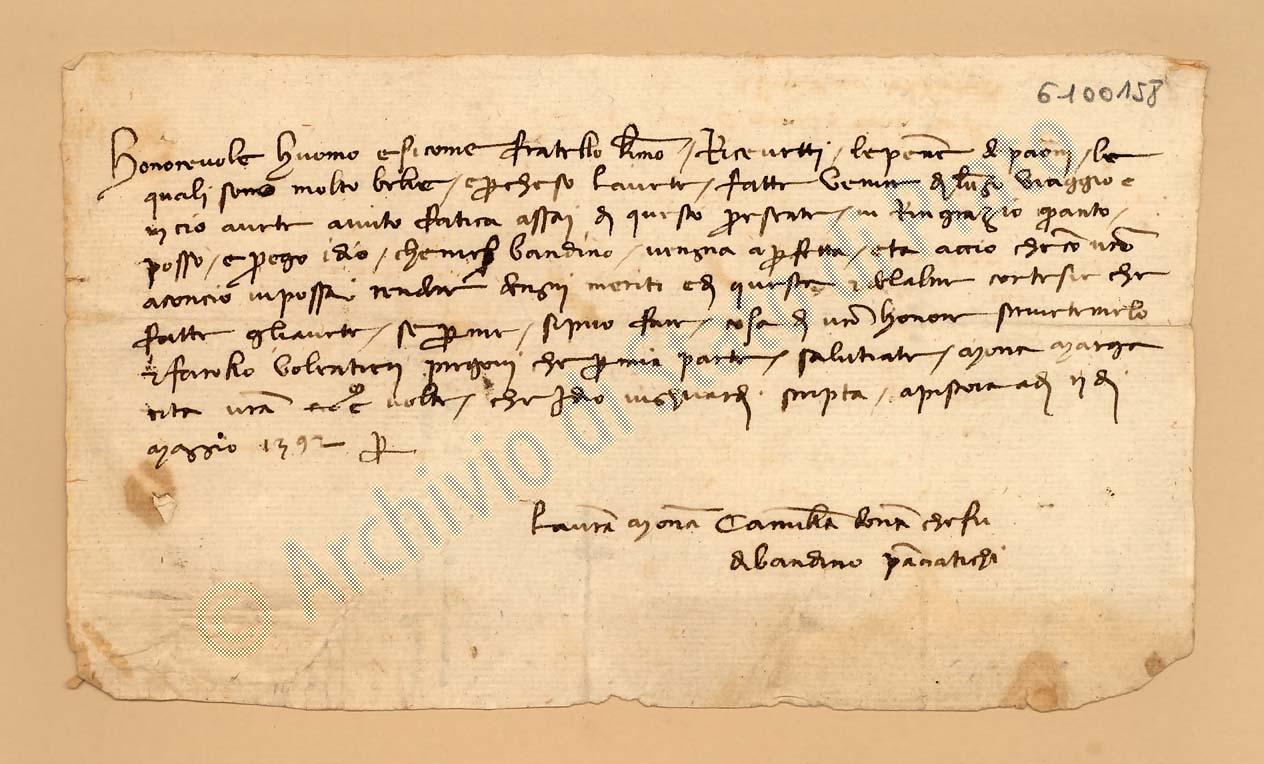 6100158
Honorevole huomo e sicome fratello k.mo / Ricevetti / le penne di paoni / le
quali sono molto belle / e perché so l'avete / fatte venire di lungo viaggio e
in ciò avete avuto fatica assai di questo presente / vi Ringrazio quanto
posso / e prego idio / che bandino / vengna a perfetta / età acciò che con vostro
aconcio vi possa rendere dengni meriti e di queste e dell'altre cortesie che
fatte gli avete / se per me / si può fare / cosa di vostro honore scrivetemelo
e farollo volentieri pregovi che per mia parte / salutiate / Mona Marghe
rita vostra volte / che Idio vi guardi scripta / a pistoia a dì di
Maggio 1392
La vostra Mona donna che fu
di bandino panciatichi
© Archivio di